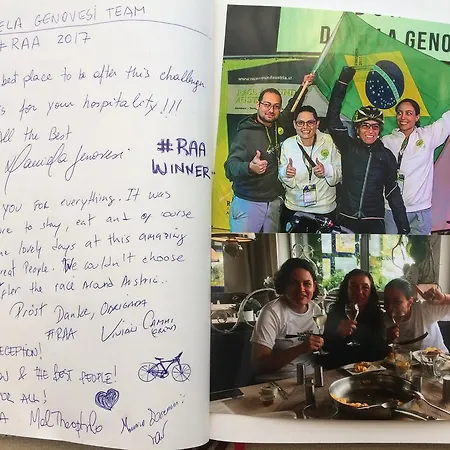 ELA GENOVESI TEAM
#RAA 2017
best place to be after this challenge
s for your hospitality!!!
All the Best
Daniela Genovesi
#RAA
WINNER
you for everything. It was
re to stay, eat and of course
e lovely days at this amazing
reat People. We couldn't choose
for the race around Austria..
Pröst Danke, OBRIGADA
#RAA
Vivian
ECEPTION!
W & THE BEST PEOPLE!
FOR ALL!
A
DA
LA GENO